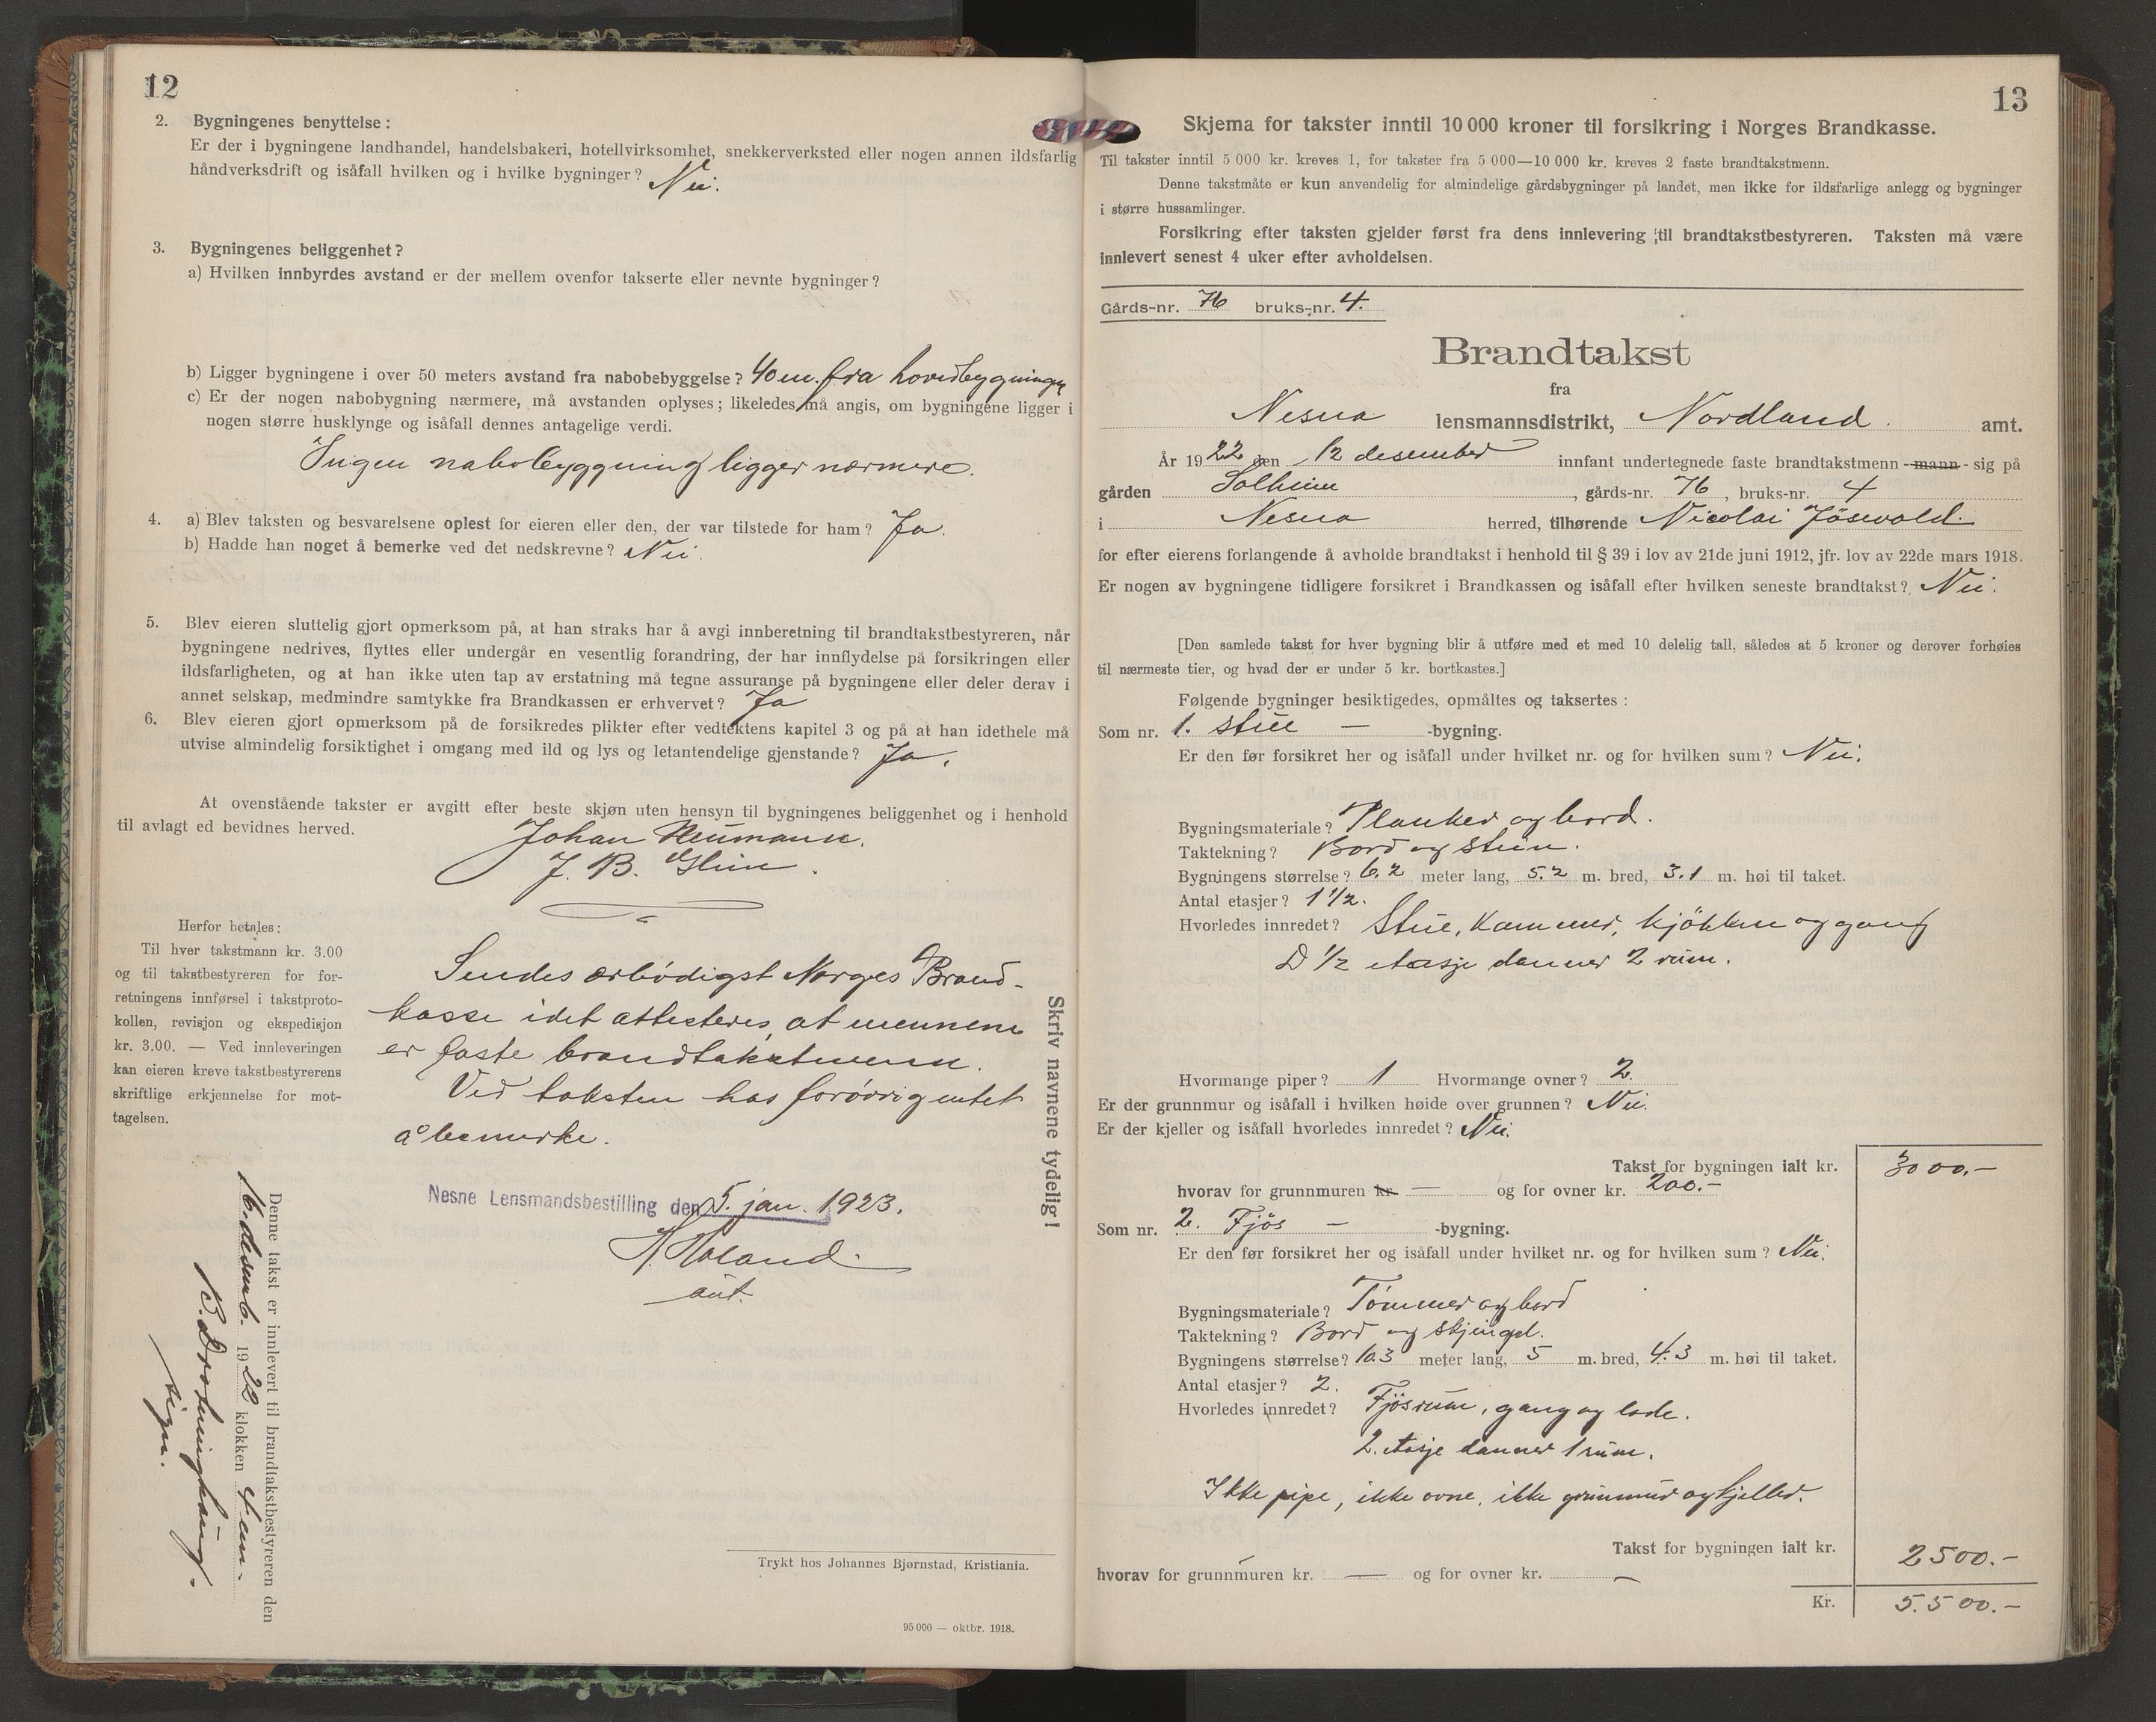 12
2. Bygningenes benyttelse:
Er der i bygningene landhandel, handelsbakeri, hotellvirksomhet, snekkerverksted eller nogen annen ildsfarlig
håndverksdrift og isåfall hvilken og i hvilke bygninger? Nei.
3. Bygningenes beliggenhet?
a) Hvilken innbyrdes avstand er der mellem ovenfor takserte eller nevnte bygninger?
b) Ligger bygningene i over 50 meters avstand fra nabobebyggelse? 40 m. fra hovedbygningen
c) Er der nogen nabobygning nærmere, må avstanden oplyses; likeledes må angis, om bygningene ligger i
nogen større husklynge og isåfall dennes antagelige verdi.
Ingen nabobyggning ligger nærmere.
4. a) Blev taksten og besvarelsene oplest for eieren eller den, der var tilstede for ham? Ja.
b) Hadde han noget å bemerke ved det nedskrevne? Nei.
5. Blev eieren sluttelig gjort opmerksom på, at han straks har å avgi innberetning til brandtakstbestyreren, når
bygningene nedrives, flyttes eller undergår en vesentlig forandring, der har innflydelse på forsikringen eller
ildsfarligheten, og at han ikke uten tap av erstatning må tegne assuranse på bygningene eller deler derav i
annet selskap, medmindre samtykke fra Brandkassen er erhvervet? Ja
6. Blev eieren gjort opmerksom på de forsikredes plikter efter vedtektens kapitel 3 og på at han idethele må
utvise almindelig forsiktighet i omgang med ild og lys og letantendelige gjenstande? Ja.
At ovenstående takster er avgitt efter beste skjøn uten hensyn til bygningenes beliggenhet og i henhold
til avlagt ed bevidnes herved.
Johan Neumann.
J. B.
Herfor betales:
Til hver takstmann kr. 3.00
og til takstbestyreren for for-
retningens innførsel i takstproto-
kollen, revisjon og ekspedisjon
kr. 3.00. — Ved innleveringen
kan eieren kreve takstbestyrerens
skriftlige erkjennelse for mot-
tagelsen.
Sendes ærbødigst Norges Brand-
kasse idet attesteres, at mennene
er faste brandtakstmenn.
Ved taksten has forøvrig intet
å bemerke.
Nesne Lensmandsbestilling den 5. jan. 1923.
H. Aaland
aut.
Skriv navnene tydelig!
Denne takst er innlevert til brandtakstbestyreren den
16. desemb. 1922 klokken 4 em.
sign.
Trykt hos Johannes Bjørnstad, Kristiania.
95 000 — oktbr. 1918.
13
Skjema for takster inntil 10 000 kroner til forsikring i Norges Brandkasse.
Til takster inntil 5 000 kr. kreves 1, for takster fra 5 000—10 000 kr. kreves 2 faste brandtakstmenn.
Denne takstmåte er kun anvendelig for almindelige gårdsbygninger på landet, men ikke for ildsfarlige anlegg og bygninger
i større hussamlinger.
Forsikring efter taksten gjelder først fra dens innlevering til brandtakstbestyreren. Taksten må være
innlevert senest 4 uker efter avholdelsen.
Gårds-nr. 76 bruks-nr. 4.
Brandtakst
fra
Nesna lensmannsdistrikt, Nordland. amt.
År 1922 den 12 desember innfant undertegnede faste brandtakstmenn - mann - sig på
gården Solheim, gårds-nr. 76, bruks-nr. 4
i Nesna herred, tilhørende Nicolai Jösevold.
for efter eierens forlangende å avholde brandtakst i henhold til § 39 i lov av 21de juni 1912, jfr. lov av 22de mars 1918.
Er nogen av bygningene tidligere forsikret i Brandkassen og isåfall efter hvilken seneste brandtakst? Nei.
[Den samlede takst for hver bygning blir å utføre med et med 10 delelig tall, således at 5 kroner og derover forhøies
til nærmeste tier, og hvad der er under 5 kr. bortkastes.]
Følgende bygninger besiktigedes, opmåltes og taksertes:
Som nr. 1. Stue — -bygning.
Er den før forsikret her og isåfall under hvilket nr. og for hvilken sum? Nei.
Bygningsmateriale? Planker og bord.
Taktekning? Bord og stein.
Bygningens størrelse? 6.2 meter lang, 5.2 m. bred, 3.1 m. høi til taket.
Antal etasjer? 1 1/2.
Hvorledes innredet? Stue, kammer, kjökken og gang
D 1/2 etasje danner 2 rum.
Hvormange piper? 1 Hvormange ovner? 2.
Er der grunnmur og isåfall i hvilken høide over grunnen? Nei.
Er der kjeller og isåfall hvorledes innredet? Nei.
Takst for bygningen ialt kr. 3000.-
hvorav for grunnmuren kr. — og for ovner kr. 200.-
Som nr. 2. Fjös — -bygning.
Er den før forsikret her og isåfall under hvilket nr. og for hvilken sum? Nei.
Bygningsmateriale? Tömmer og bord
Taktekning? Bord og skjingel.
Bygningens størrelse? 10.3 meter lang, 5 m. bred, 4.3 m. høi til taket.
Antal etasjer? 2.
Hvorledes innredet? Fjösrum, gang og lade.
2. etasje danner 1 rum.
Ikke pipe, ikke ovne, ikke grunmur og kjeller.
Takst for bygningen ialt kr. 2500.-
hvorav for grunnmuren kr. — og for ovner kr. —
Kr. 5.500.-